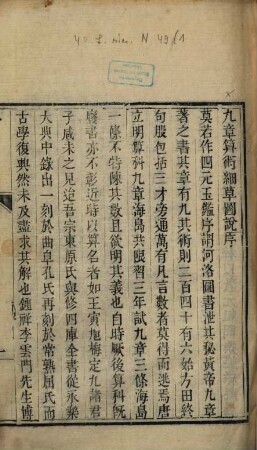 4° L. sin. N 49/1
九章算術細草圖說序
莫若作四元玉鑑序謂河洛圖書泄其秘黃帝九章
著之書其章有九其術則二百四十有六始方田終
句股包括三才旁通萬有凡言數者莫得而逃焉唐
立明算科九章海島共限習三年試九章三條海島
一條不特陳其數且欲明其義也自時厥後算科既
廢書亦不彰近時以算名者如王寅旭梅定九諸君
子咸未之見迨吾宗東原氏與修四庫全書從永樂
大典中錄出一刻於曲阜孔氏再刻於常熟屈氏而
古學復興然未及盡求其解也鍾祥李雲門先生博